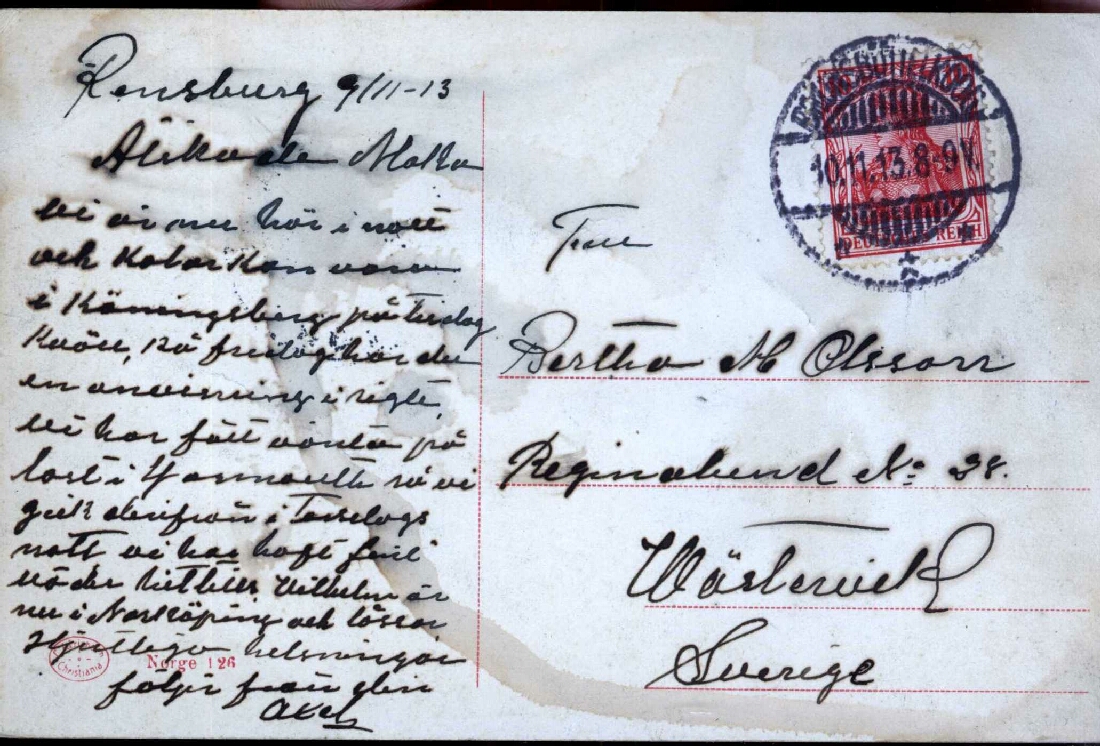 Rensburg 9/11-13
Älskade Maka
vi är nu här i natt
och Kalar Kan vara
i Köningsberg på Tisdag
Kväll, så fredag har du
en anvisning i
vi har fått vänta på
last i Yarmouth så vi
gick derifrån i Torsdags
natt vi har haft fint
väder hittills Vilhelm är
nu i Norsköping och lossar
Hjertliga helsningar
följer från din
Axel
Christiania
Norge 126
10.11.13.8-9V.
DEUTSCHES REICH
Frau
Bertha M Olsson
Reginalund No 28.
Wästervick
Sverige